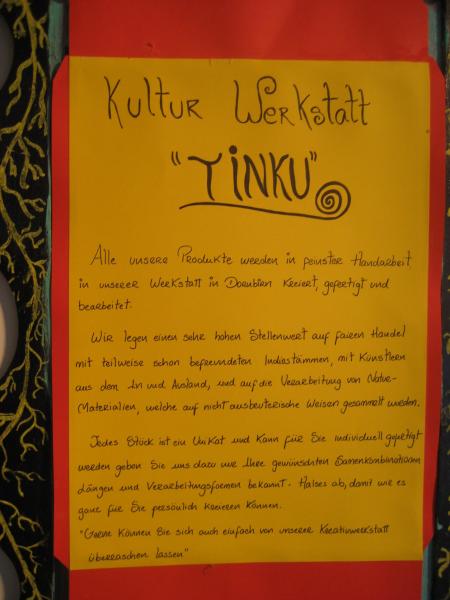 Kultur Werkstatt
"TINKU"
Alle unsere Produkte werden in feinster Handarbeit
in unserer Werkstatt in Dornbirn kreiert, gefertigt und
bearbeitet.
Wir legen einen sehr hohen Stellenwert auf fairen Handel
mit teilweise schon befreundeten Indiostämmen, mit Künstlern
aus dem In und Ausland, und auf die Verarbeitung von Natur-
Materialien, welche auf nicht ausbeuterische Weisen gesammelt wurden.
Jedes Stück ist ein Unikat und kann für Sie individuell gefertigt
werden geben Sie uns dazu nur Ihre gewünschten Samenkombinationen
Längen und Verarbeitungsformen bekannt. Halses ab, damit wir es
ganz für Sie persönlich kreieren können.
"Gerne können Sie sich auch einfach von unserer Kreativwerkstatt
überraschen lassen"